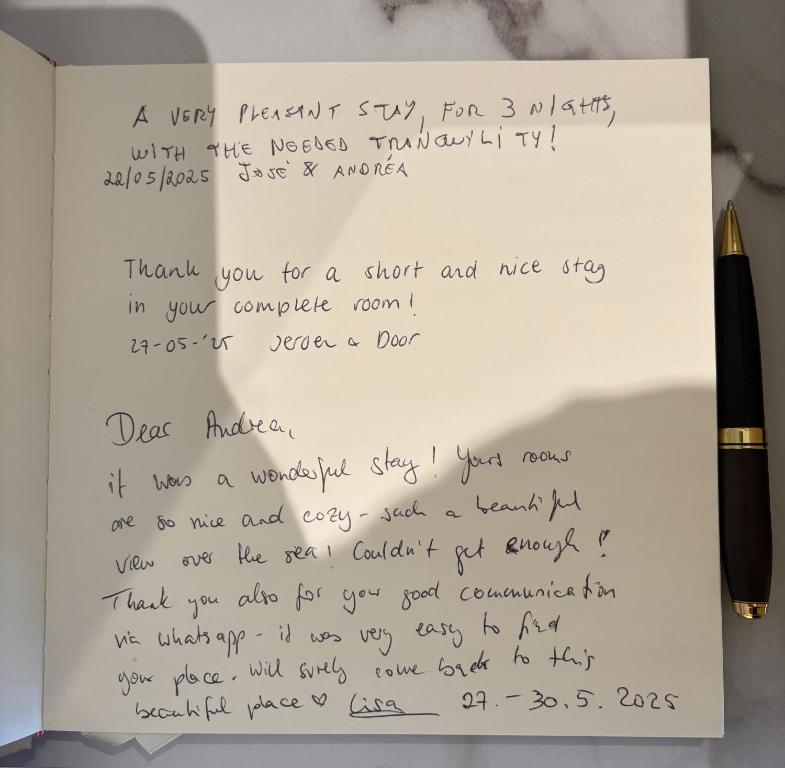 A VERY PLEASANT STAY, FOR 3 NIGHTS,
WITH THE NEEDED TRANQUYLITY!
22/05/2025 JOSÉ & ANDRÉA
Thank you for a short and nice stay
in your complete room!
27-05-'25 Jeroen & Door
Dear Andrea,
it was a wonderful stay! Yours rooms
are so nice and cozy - such a beautiful
view over the sea! Couldn't get enough!
Thank you also for your good communication
via whatsapp - it was very easy to find
your place. Will surely come back to this
beautiful place ♡ Lisa 27. - 30. 5. 2025